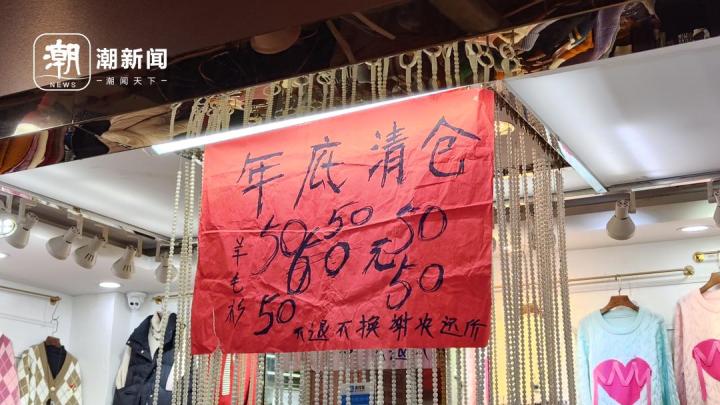 潮
NEWS
潮新闻
潮闻天下
年底清仓
羊毛衫
50 50 50
60元
50 50
不退不换谢绝还价